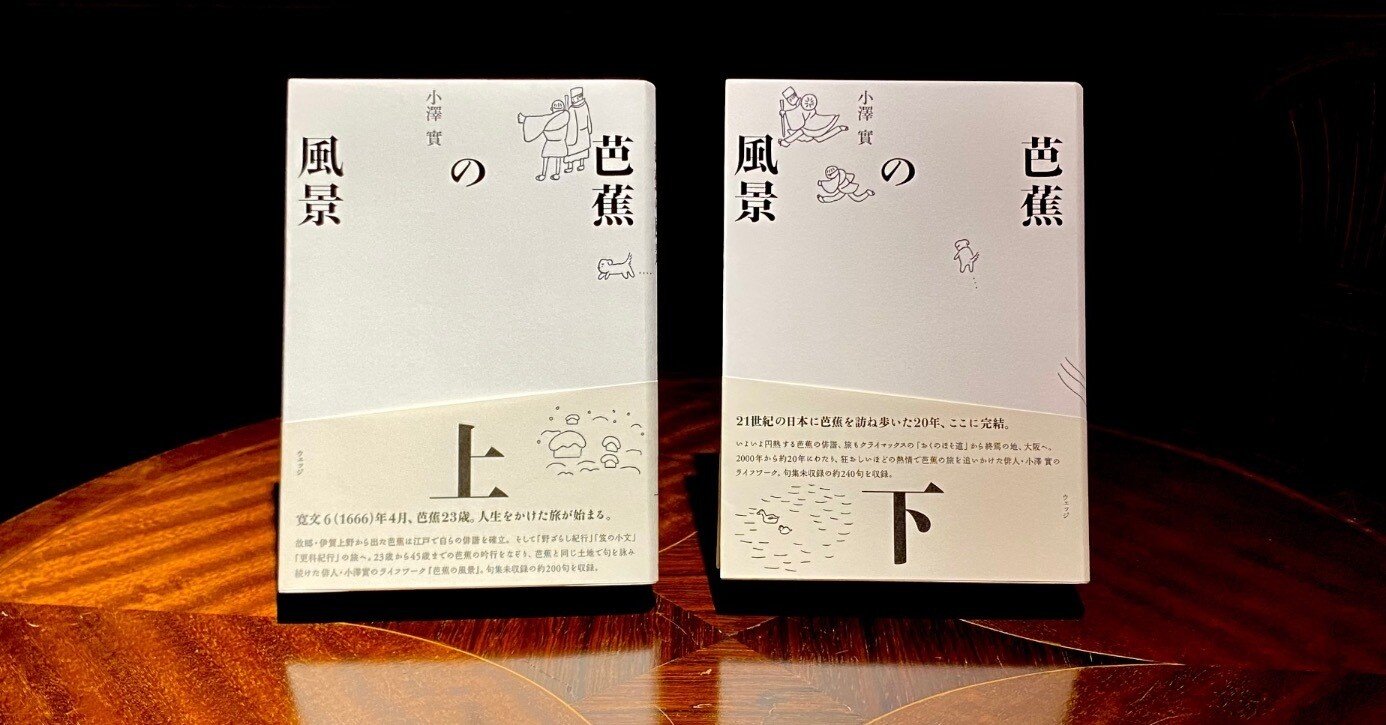 芭蕉
の
風景
小澤 實
上
寛文6(1666)年4月、芭蕉23歳。人生をかけた旅が始まる。
故郷・伊賀上野から出た芭蕉は江戸で自らの俳諧を確立。そして「野ざらし紀行」「笈の小文」
「更科紀行」の旅へ。23歳から45歳までの芭蕉の吟行をなぞり、芭蕉と同じ土地で句を詠み
続けた俳人・小澤實のライフワーク『芭蕉の風景』。句集未収録の約200句を収録。
ウェッジ
芭蕉
の
風景
小澤 實
21世紀の日本に芭蕉を訪ね歩いた20年、ここに完結。
いよいよ円熟する芭蕉の俳諧、旅もクライマックスの「おくのほそ道」から終焉の地、大阪へ。
2000年から約20年にわたり、狂おしいほどの熱情で芭蕉の旅を追いかけた俳人・小澤 實の
ライフワーク。句集未収録の約240句を収録。
下
ウェッジ